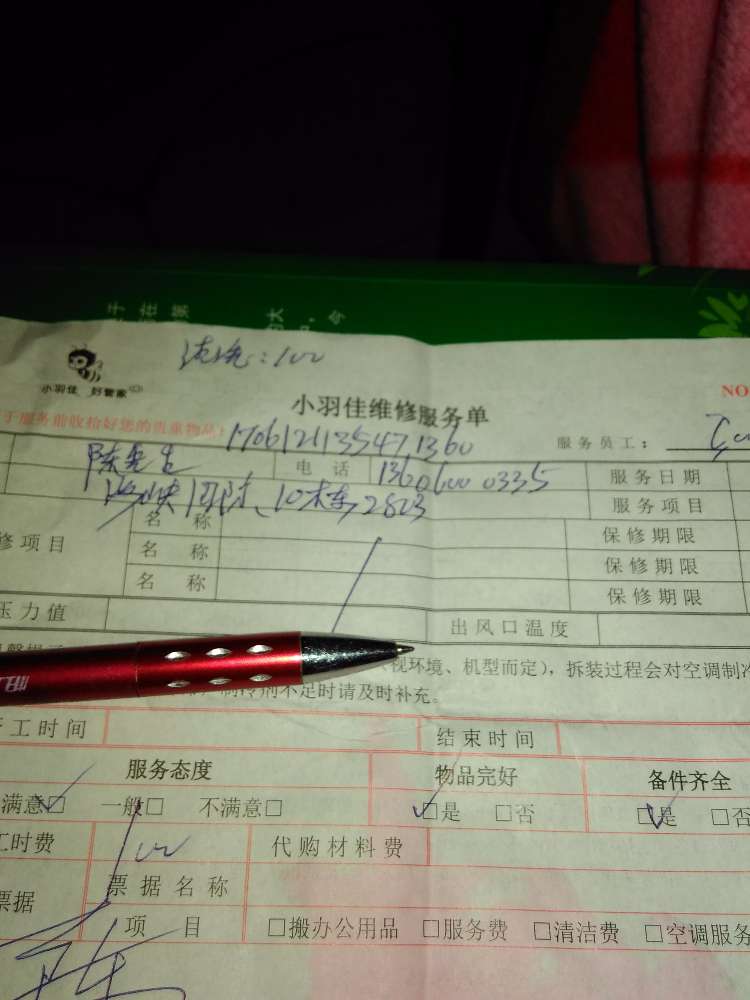 小羽佳 好管家
小羽佳维修服务单
NO
于服务前收拾好您的贵重物品!
服务员工:
1706121135471360
陈先生 电话 13606000335 服务日期
10栋 2803 服务项目
修项目 名称 保修期限
名称 保修期限
名称 保修期限
压力值 出风口温度
视环境、机型而定),拆装过程会对空调制冷
制冷剂不足时请及时补充。
工时间 结束时间
服务态度 物品完好 备件齐全
满意□ 一般□ 不满意□ □是 □否 □是 □否
工时费 100 代购材料费
票据 票据名称
项目 □搬办公用品 □服务费 □清洁费 □空调服务